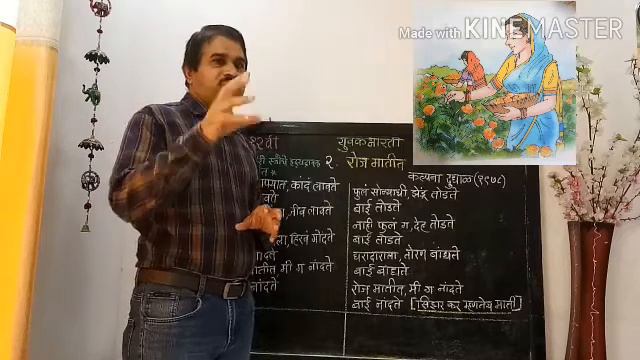 Made with KINEMASTER
१२वी युवकभारती
२. रोज मातीत
कल्पना दुधाळ (१९७८)
कांदं लावते
फुलं सोन्याची, झेंडू तोडते
बाई तोडते
जीव लावते
नाही फुलं ग, देह तोडते
बाई तोडते
हिरवं गोंदते
घरादाराला, तोरण बांधते
बाई बांधते
मी ग नांदते
रोज मातीत, मी ग नांदते
नांदते
बाई नांदते